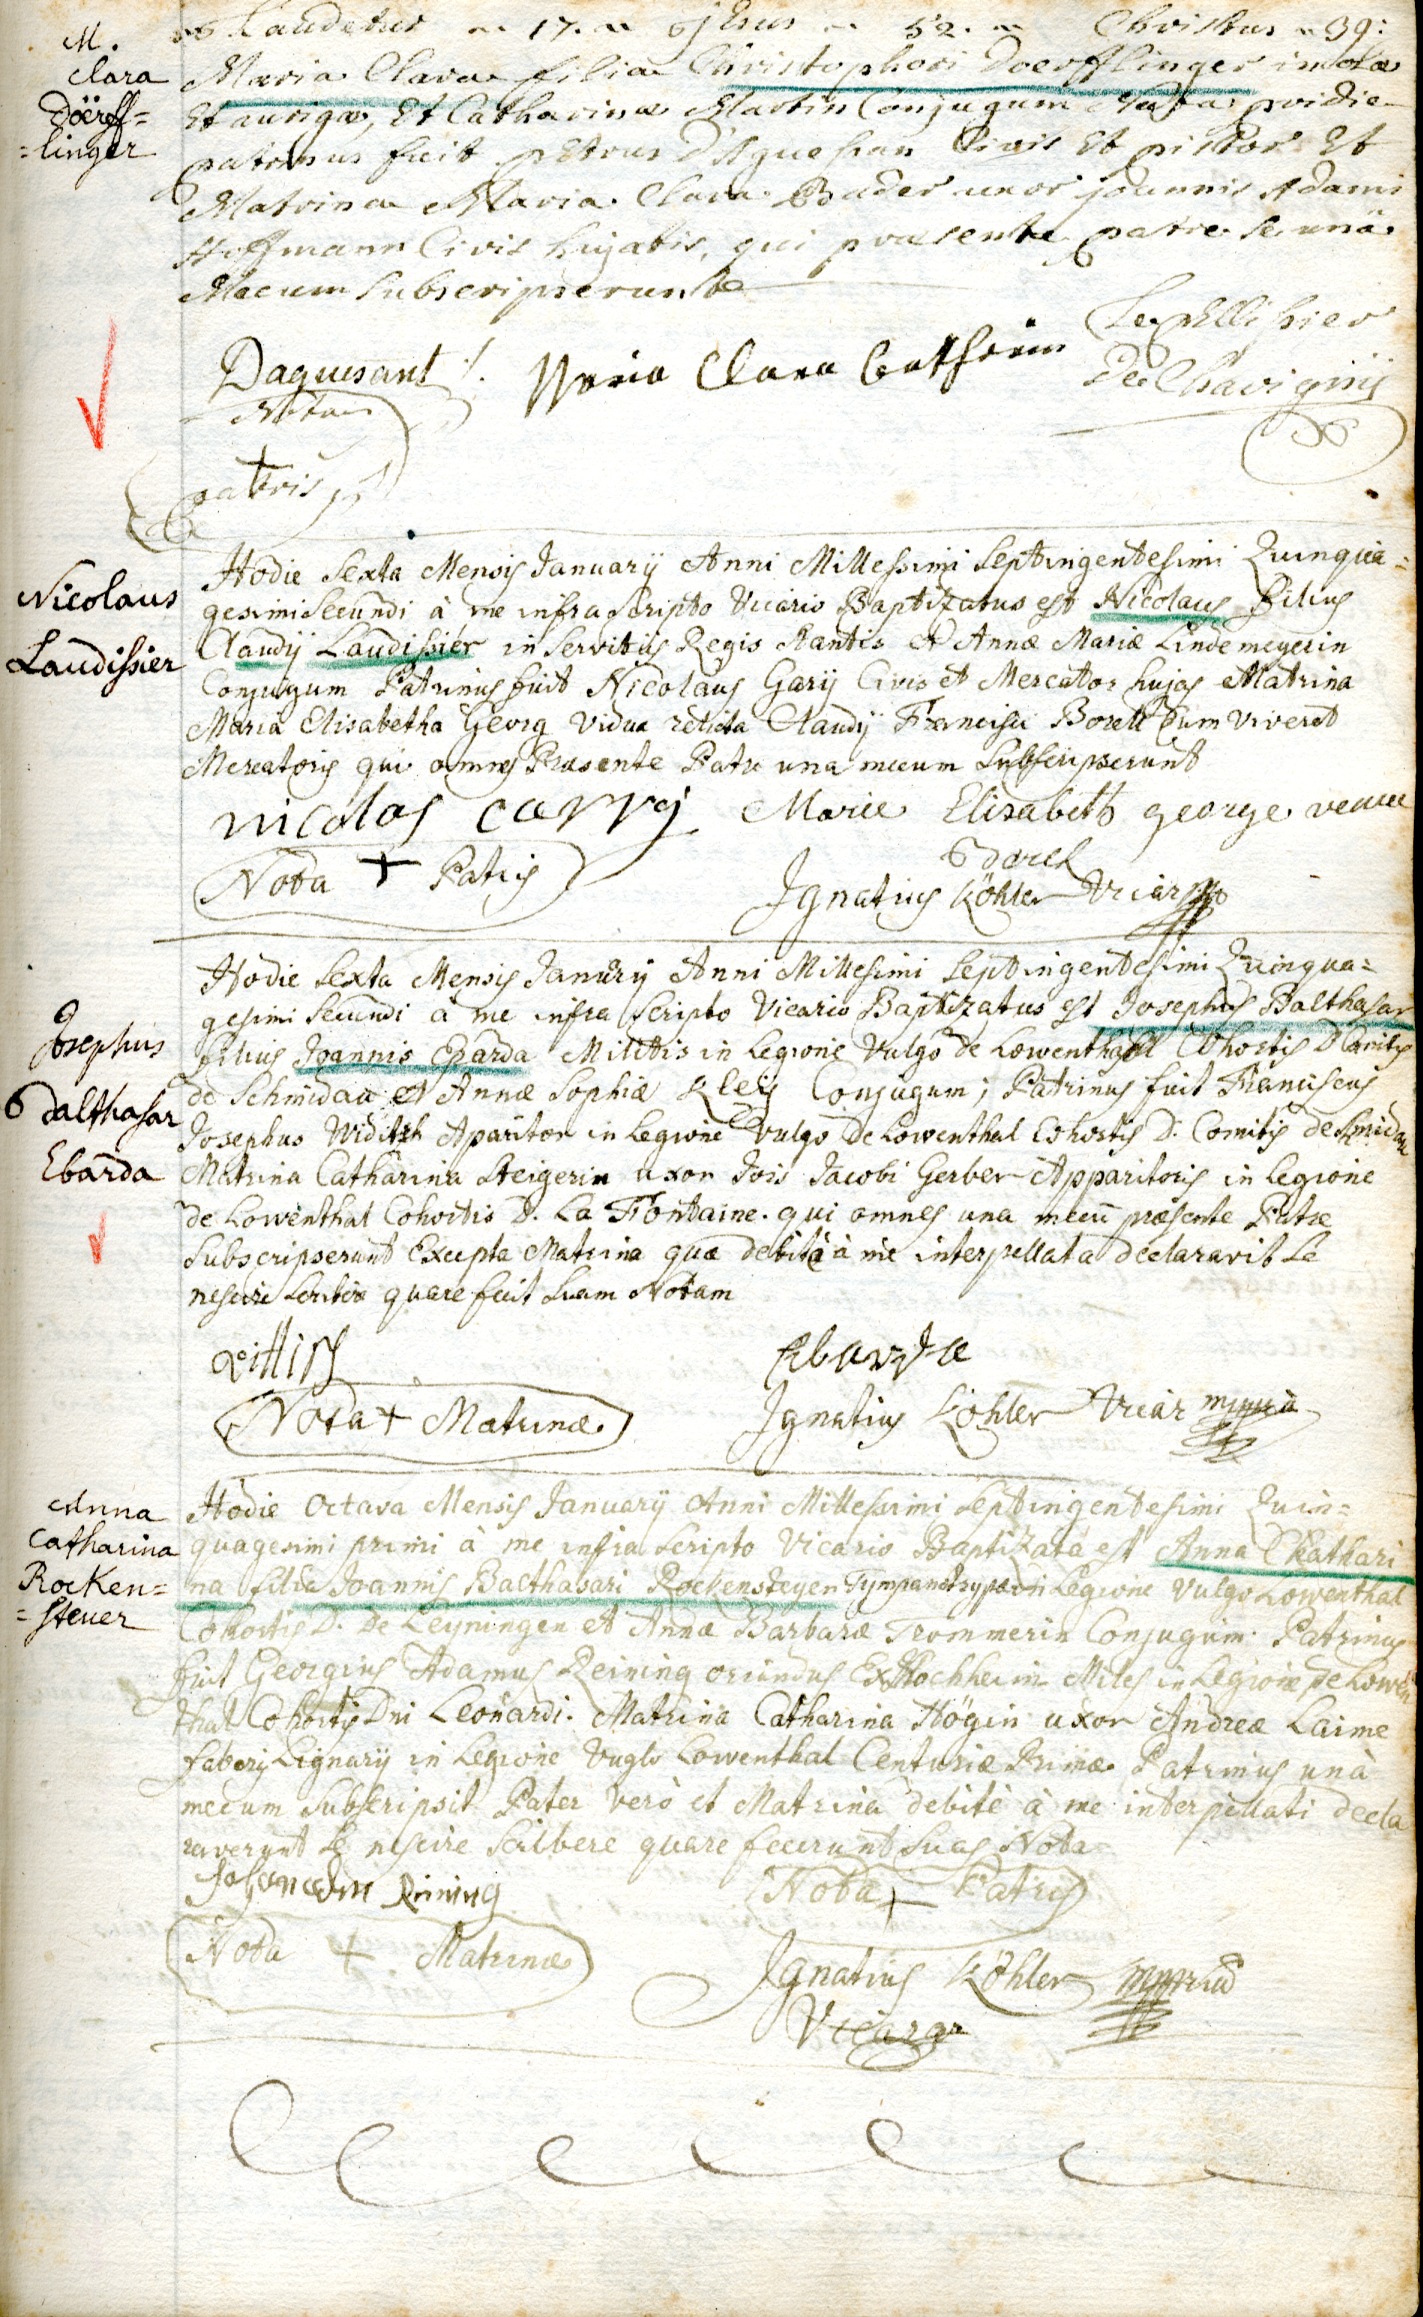 Laudetur 17. Jesus 52. Christus 39:
M.
Clara
Döerff=
=linger
Maria Clara filia Christophori Doerfflinger incolæ
Et aurigæ, Et Catharinæ Martin Conjugum Nata pridie
patrinus fuit petrus D'Aguesan Civis Et pistor Et
Matrina Maria Clara Bader uxor joannis Adami
Hoffmann Civis hujatis, qui præsente patre se unà
Mecum Subscripserunte
Daquesant Maria Clara
Nota
patris
Le pellissier
De Chavignÿ
Nicolaus
Laudissier
Hodie Sexta Mensis Januarij Anni Millessimi Septingentesimi Quinqua=
gesimi Secundi à me infra Scripto Vicario Baptizatus est Nicolaus Filius
Claudij Laudissier in Servitiis Regis Stantis et Annæ Mariæ Lindemeyerin
Conjugum Patrinus fuit Nicolaus Garij Civis et Mercator hujas Matrina
Maria Elisabetha Georg Vidua relicta Claudij Francisci Borell Dum Viveret
Mercatoris qui omnes Præsente Patre una mecum Subscripserunt
nicolas carryj Marie Elisabeth george veuue
Borel
Nota + Patris
Ignatius Köhler Vicar
Josephus
Balthasar
Ebarda
Hodie Sexta Mensis Januarij Anni Millesimi Septingentesimi Quinqua=
gesimi Secundi a me infra Scripto Vicario Baptizatus est Josephus Balthasar
filius Joannis Ebarda Militis in Legione Vulgo de Lowenthall Cohortis D. Comitis
de Schmidau et Annæ Sophiæ Kleÿ Conjugum; Patrinus fuit Franciscus
Josephus Widitsh Aparitor in Legione Vulgo De Lowenthal Cohortis D. Comitis de Smidau
Matrina Catharina Steigerin uxor Jois Jacobi Gerber Apparitoris in Legione
de Lowenthal Cohortis D. La Fontaine. qui omnes una mecū præsente Patre
Subscripserunt Excepta Matrina quæ debitè à me interpellata declaravit Se
nescire Scribere quare fecit Suam Notam
Ebarda
Nota + Matrinæ
Ignatius Köhler Vicar mppria
Anna
Catharina
Rocken=
=steuer
Hodie Octava Mensis Januarij Anni Millessimi Septingentesimi Quin=
quagesimi primi à me infra Scripto Vicario Baptizata est Anna Chathari
na filia Joannis Balthasari Rockensteyen Tympanotryba in Legione Vulgo Lowenthal
Cohortis D. De Leyningen et Annæ Barbaræ Trommerin Conjugum. Patrinus
fuit Georgius Adamus Reining oriundus Ex Hochheim Miles in Legione De Lowen
thal Cohortis Dni Leonardi. Matrina Catharina Högin uxor Andreæ Laime
Fabery Lignarij in Legione Vuglo Lowenthal Centuriæ Primæ Patrinus unà
mecum Subscripsit Pater verò et Matrina debitè à me interpellati decla
raverunt Se nescire Scribere quare fecerunt Suas Nota
Reining
Nota + Patris
Nota + Matrinæ
Ignatius Köhler mppria
Vicar